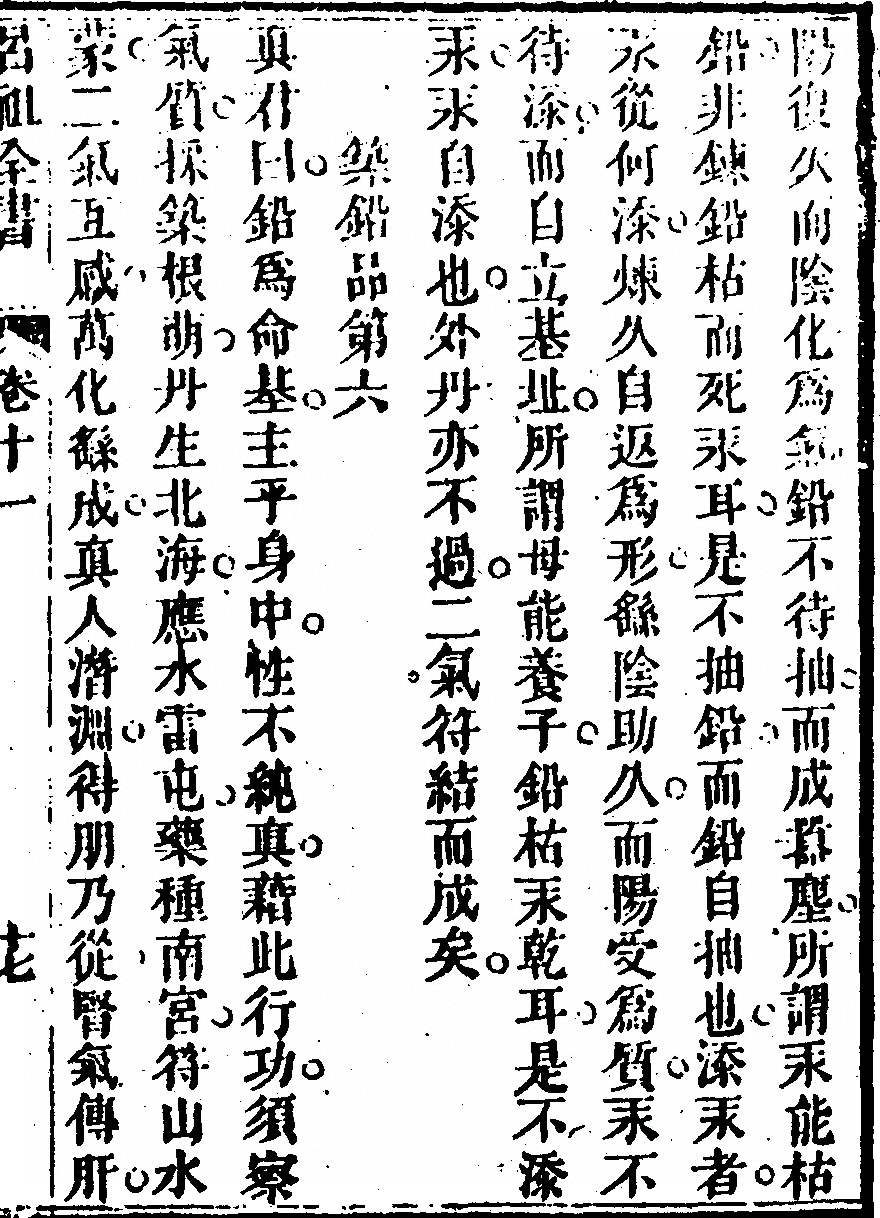 陽復久而陰化爲氣鉛不待抽而成羃塵所謂汞能枯
鉛非鍊鉛枯而死汞耳是不抽鉛而鉛自抽也添汞者
汞從何添煉久自返爲形繇陰助久而陽受爲質汞不
待添而自立基址所謂母能養子鉛枯汞乾耳是不添
汞汞自添也外丹亦不過二氣符結而成矣
築鉛品第六
眞君曰鉛爲命基主乎身中性不純眞藉此行功須察
氣質採築根萌丹生北海應水雷屯藥種南宮符山水
蒙二氣互感萬化繇成眞人潛淵得朋乃從腎氣傳肝
呂祖全書 卷十一